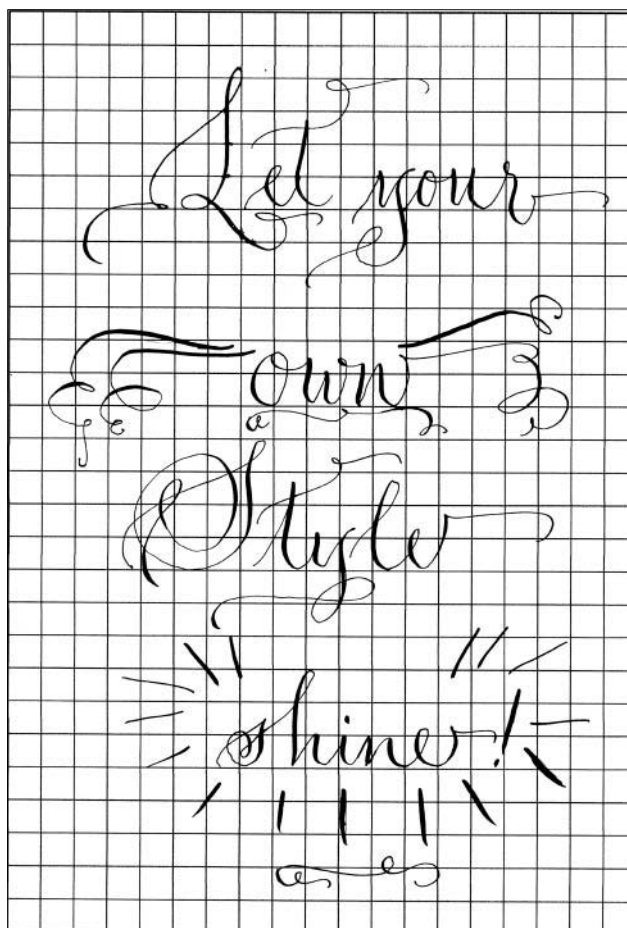 Let your
own
Style
shine!